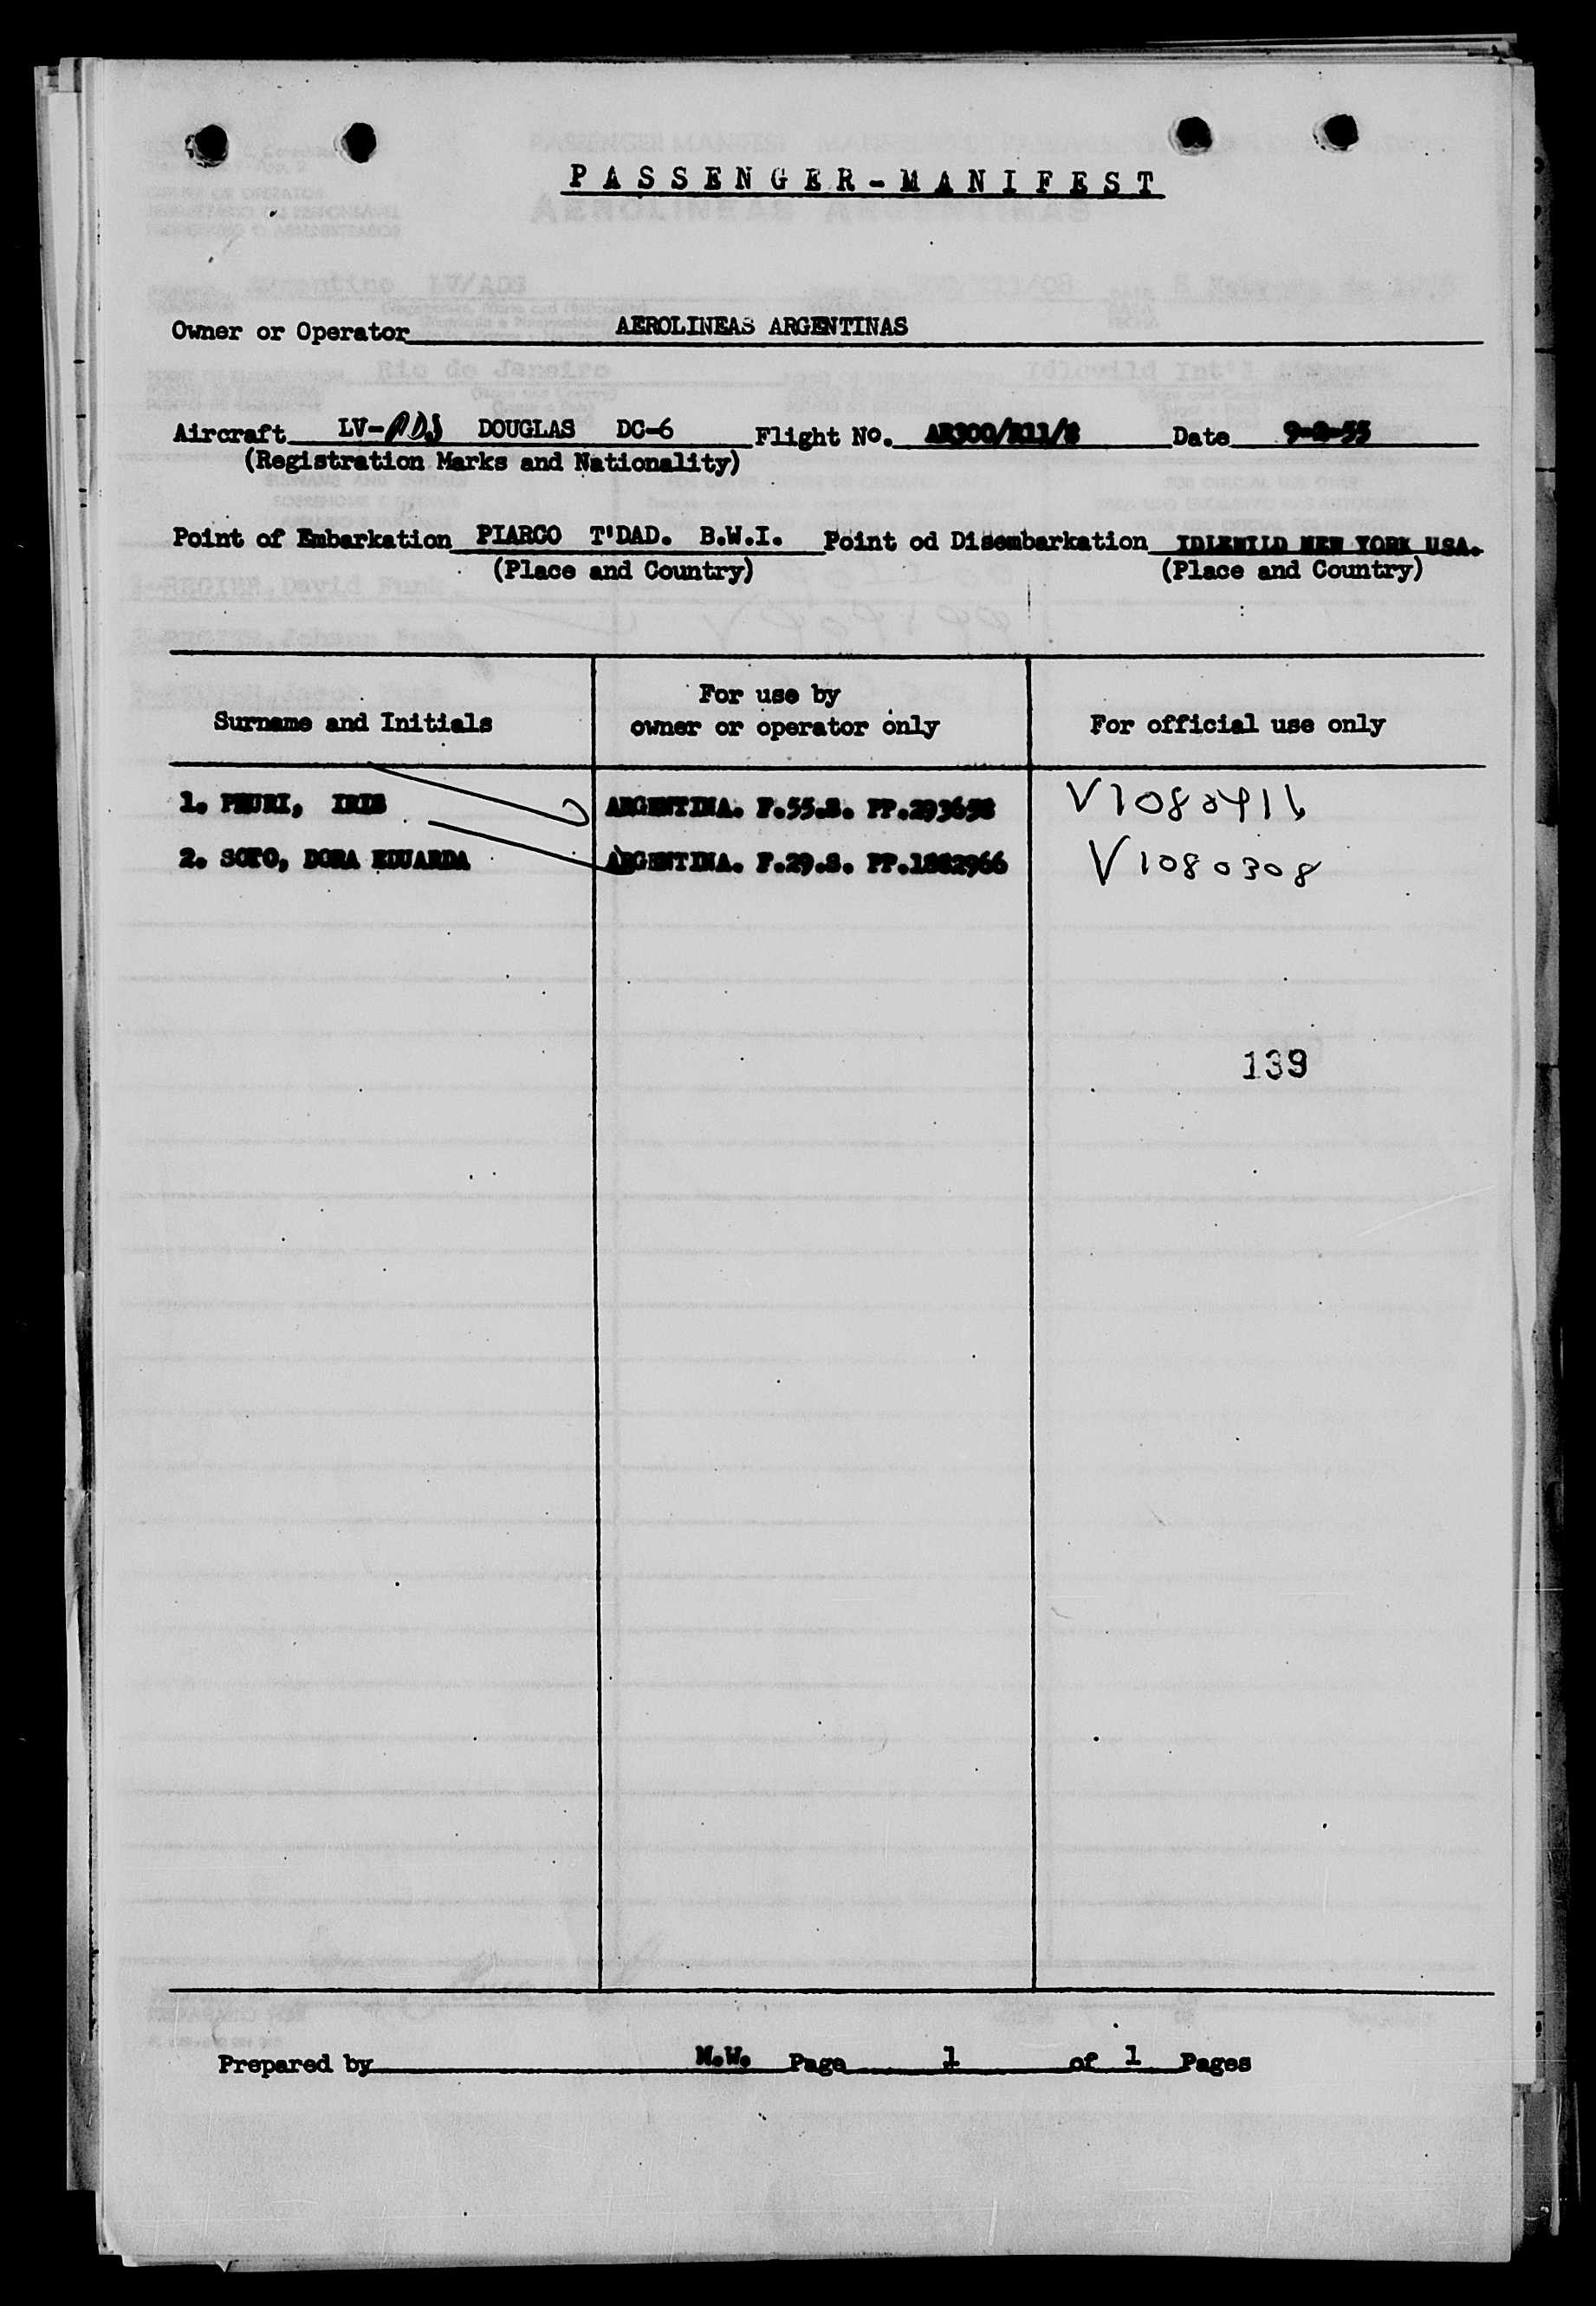 PASSENGER-MANIFEST
Owner or Operator AEROLINEAS ARGENTINAS
Aircraft LV-ADS DOUGLAS DC-6 Flight No. AR300/R11/8 Date 9-2-55
(Registration Marks and Nationality)
Point of Embarkation PIARCO T'DAD. B.W.I. Point od Disembarkation IDLEWILD NEW YORK USA.
(Place and Country) (Place and Country)
Surname and Initials For use by owner or operator only For official use only
1. IRIS ARGENTINA. F.55.S. PP.293698
2. SOTO, DORA EDUARDA ARGENTINA. F.29.S. PP.1882966 V1080308
139
Prepared by M.W. Page 1 of 1 Pages